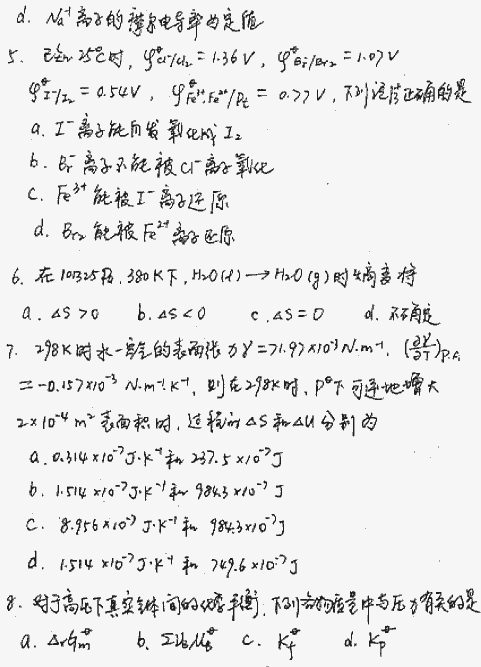 d. Na⁺离子的摩尔电导率为定值
5. 已知25℃时, φ^θCl⁻/Cl₂ = 1.36V, φ^θBr⁻/Br₂ = 1.07V
φ^θI⁻/I₂ = 0.54V, φ^θFe³⁺,Fe²⁺/Pt = 0.77V, 下列结论正确的是
a. I⁻离子能自发氧化成I₂
b. Br⁻离子不能被Cl⁻离子氧化
c. Fe³⁺能被I⁻离子还原
d. Br₂能被Fe²⁺离子还原
6. 在101325Pa, 380K下, H₂O(l)→H₂O(g)时熵变将
a. ΔS>0 b. ΔS<0 c. ΔS=0 d. 不确定
7. 298K时水-空气的表面张力γ=71.97×10⁻³N·m⁻¹, (∂γ/∂T)p.A
=-0.157×10⁻³N·m⁻¹·K⁻¹, 则在298K时, P^θ下可逆地增大
2×10⁻⁴m²表面积时, 过程的ΔS和ΔU分别为
a. 0.314×10⁻⁷J·K⁻¹和237.5×10⁻⁷J
b. 1.514×10⁻⁷J·K⁻¹和984.3×10⁻⁷J
c. 8.956×10⁻⁷J·K⁻¹和984.3×10⁻⁷J
d. 1.514×10⁻⁷J·K⁻¹和749.6×10⁻⁷J
8. 对于高压下真实气体间的化学平衡, 下列各物质量中与压力有关的是
a. ΔrG^θm b. ΣνBμ^θB c. K^θf d. K^θp